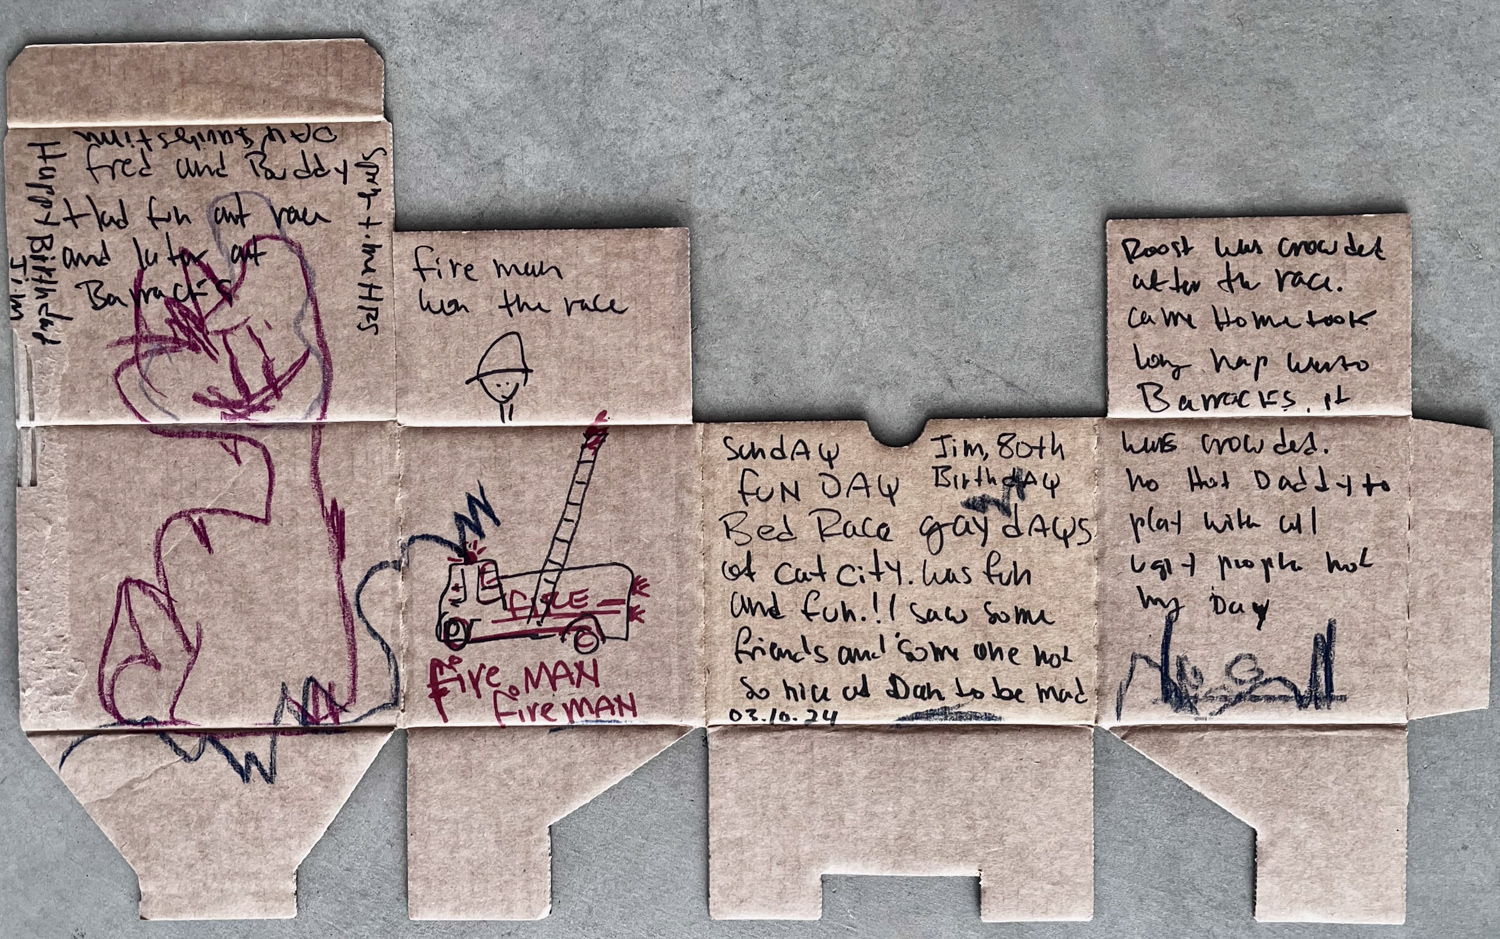 DAY Savings time
Fred and Buddy
Had fun at race
and later at
Barracks
Happy Birthday
Jim
fire man
won the race
FIRE
Fire MAN
fire MAN
SundAY
FUN DAY
Jim, 80th
BirthdAY
Bed Race gay dAYS
at cat city. was fun
and fun.!! saw some
friends and some one not
so nice at Dan to be mad
03.10.24
Roost was crowded
after the race.
came Home took
long nap went to
BarrackS, it
was crowded.
no Hot Daddy to
play with all
ugly people not
my Day